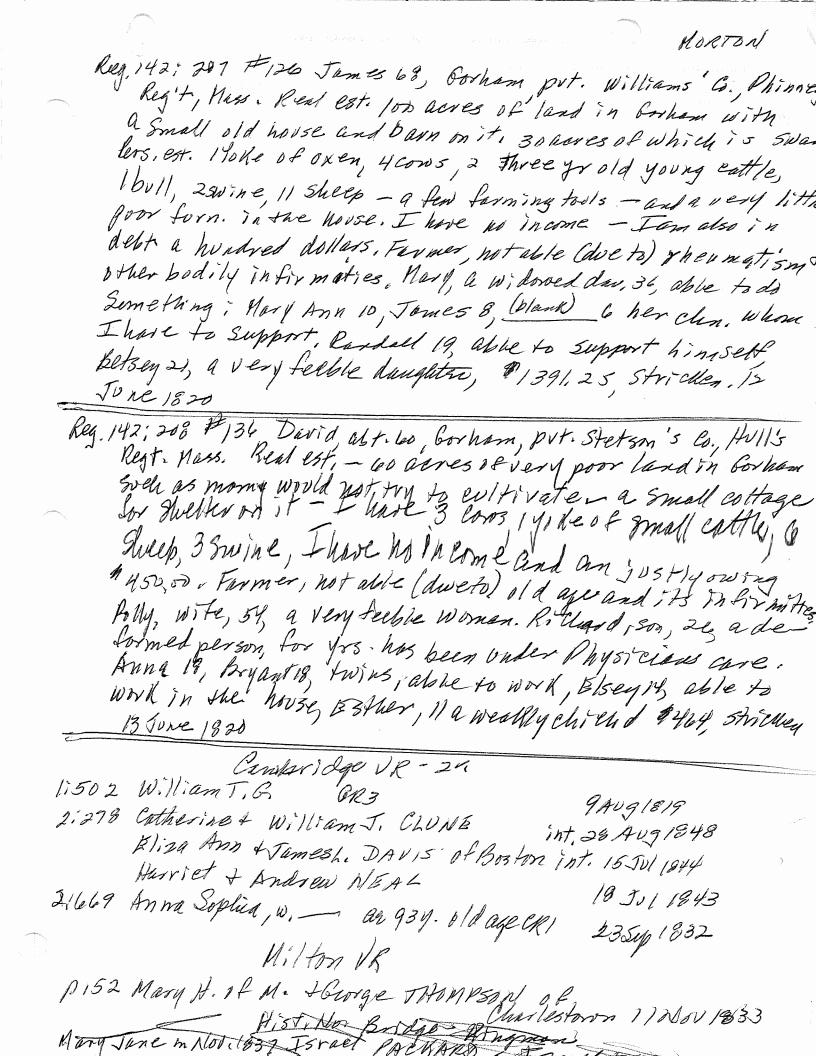 MORTON
Reg. 142: 207 #126 James 68, Gorham, pvt. Williams' Co., Phinne
Reg't, Mass. Real est. 100 acres of land in Gorham with
a small old house and barn on it, 30 acres of which is swa
Pers. est. 1 yoke of oxen, 4 cows, 2 three yr old young cattle,
1 bull, 2 swine, 11 sheep — a few farming tools — and a very litt
poor furn. in the house. I have no income — I am also in
debt a hundred dollars. Farmer, not able (due to) rheumatism
other bodily infirmaties. Mary, a widowed dau. 36, able to do
something; Mary Ann 10, James 8, (blank) 6 her chn. whom
I have to support. Randall 19, able to support himself,
Betsey 21, a very feeble daughter, $1391.25, Stricken. 12
June 1820
Reg. 142: 208 #136 David, abt. 60, Gorham, pvt. Stetson's Co., Hull's
Regt. Mass. Real est. — 60 acres of very poor land in Gorham
such as many would not try to cultivate — a small cottage
for shelter on it — I have 3 cows, 1 yoke of small cattle, 6
sheep, 3 swine, I have no income and am justly owing
$450.00. Farmer, not able (due to) old age and its infirmities
Polly, wife, 54, a very feeble woman. Richard, son, 26, a de-
formed person, for yrs. has been under Physicians care.
Anna 18, Bryant 18, twins, able to work, Elsey 14, able to
work in the house, Esther, 11 a weakly chield $464, stricken
13 June 1820
Cambridge VR - 2n
1:502 William T. G. GR3 9 Aug 1819
2:278 Catherine & William J. CLUNE int. 28 Aug 1848
Eliza Ann & James H. DAVIS of Boston int. 15 Jul 1844
Harriet & Andrew NEAL 18 Jul 1843
2:669 Anna Sophia, w. — ae 93y. old age CR1 23 Sep 1832
Milton VR
p. 152 Mary H. of M. & George THOMPSON of
Charlestown 17 Nov 1833
Hist. No. Bridge - Kingman
Mary Jane m Nov. 1837 Israel PACKARD